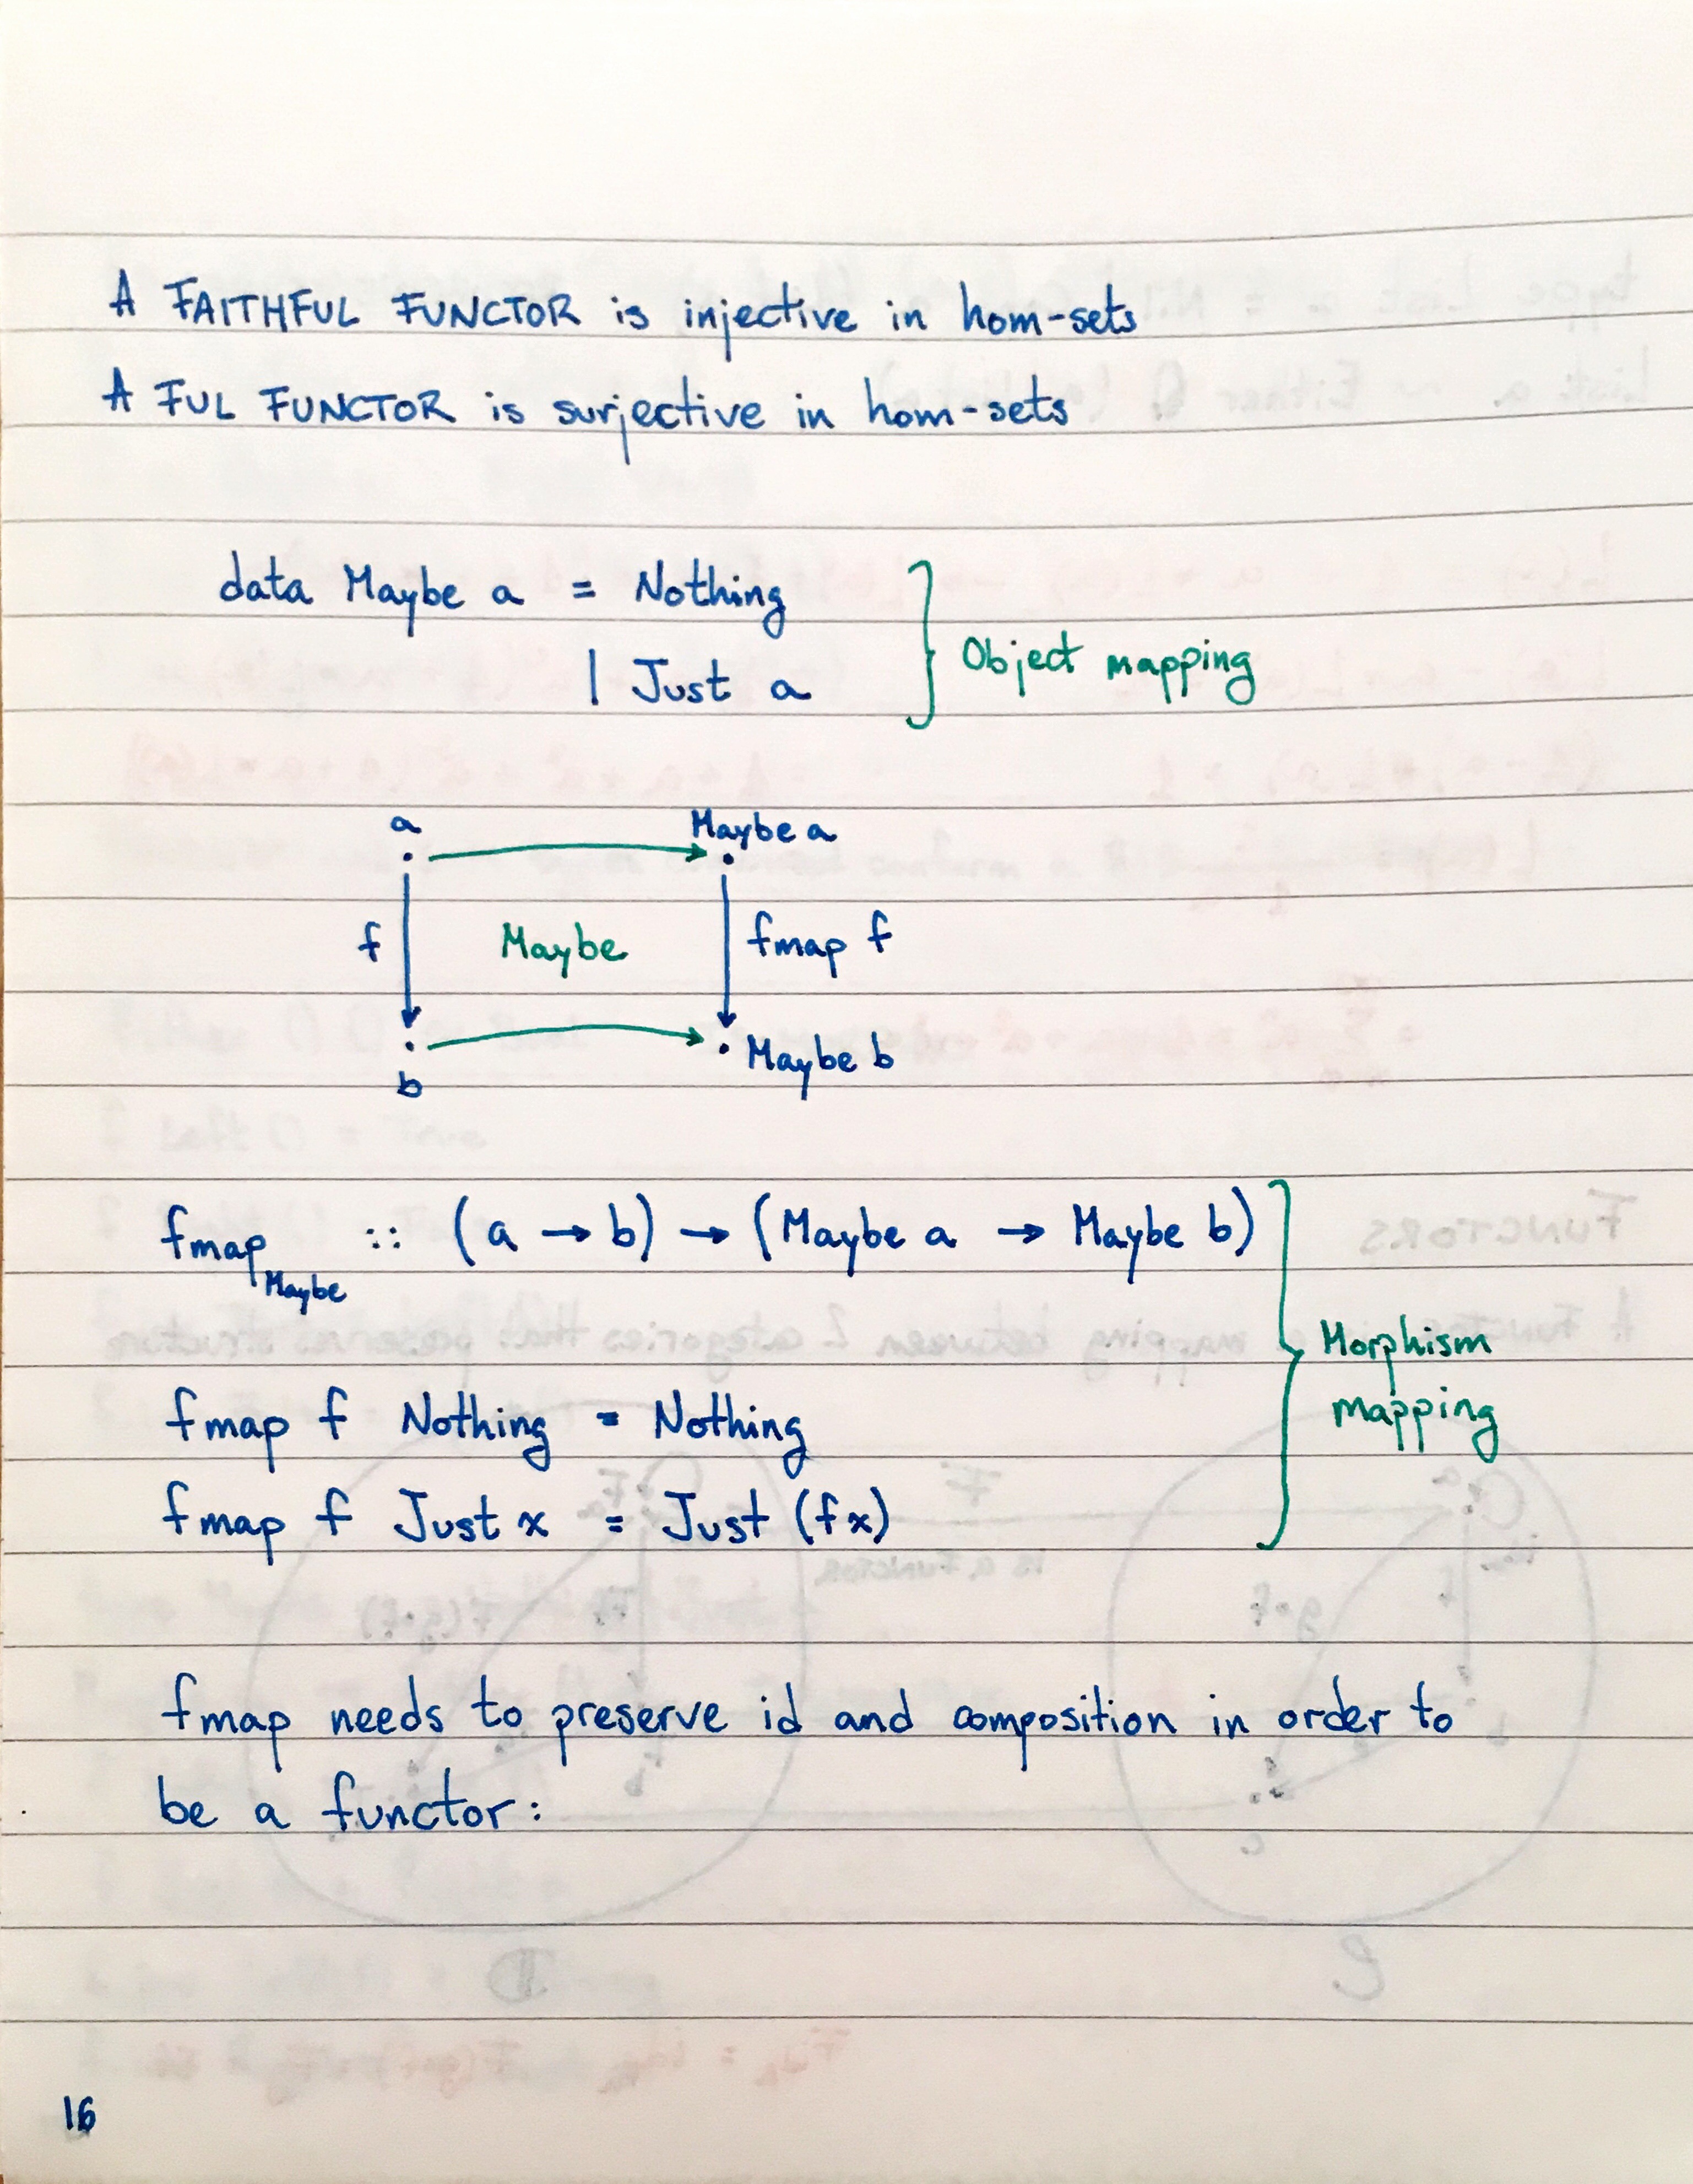 A FAITHFUL FUNCTOR is injective in hom-sets
A FUL FUNCTOR is surjective in hom-sets
data Maybe a = Nothing
| Just a
Object mapping
a
Maybe a
f
Maybe
fmap f
b
Maybe b
fmap Maybe :: (a → b) → (Maybe a → Maybe b)
fmap f Nothing = Nothing
fmap f Just x = Just (f x)
Morphism
mapping
fmap needs to preserve id and composition in order to
be a functor:
16